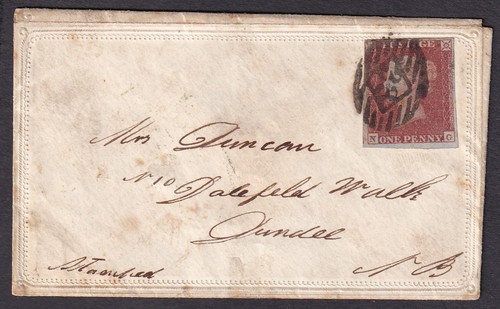 POSTAGE
N ONE PENNY G
Mrs Duncan
No 10
Dalefeld Walk
Dundee
Stamped N B